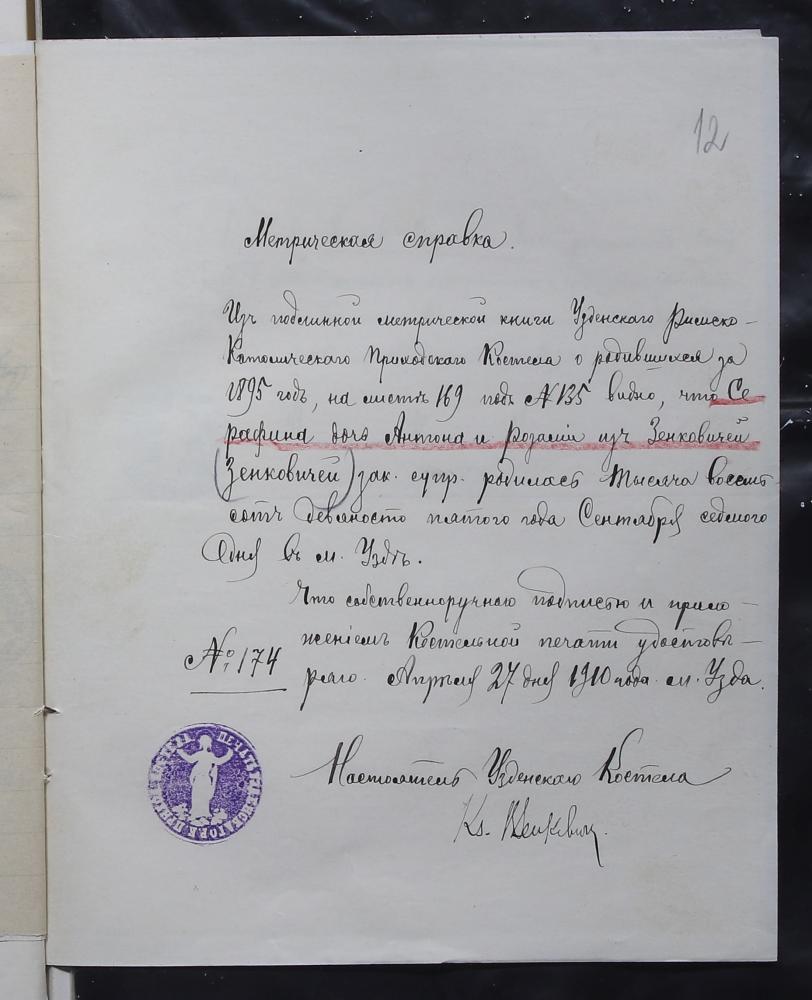 12
Метрическая справка.
Изъ подлинной метрической книги Узденскаго Римско-
Католическаго Приходскаго Костела о родившихся за
1895 годъ, на листѣ 169 подъ № 135 видно, что Се
рафина дочь Антона и Розалiи изъ Зенковичей
(Зенковичей) зак. супр. родилась тысяча восемь
сотъ девяносто пятого года Сентября седмого
дня въ м. Уздѣ.
Что собственноручною подписью и прило-
женiемъ Костельной печати удостовѣ-
ряю. Апрѣля 27 дня 1910 года. м. Узда.
№ 174
Настоятель Узденскаго Костела
Кs.